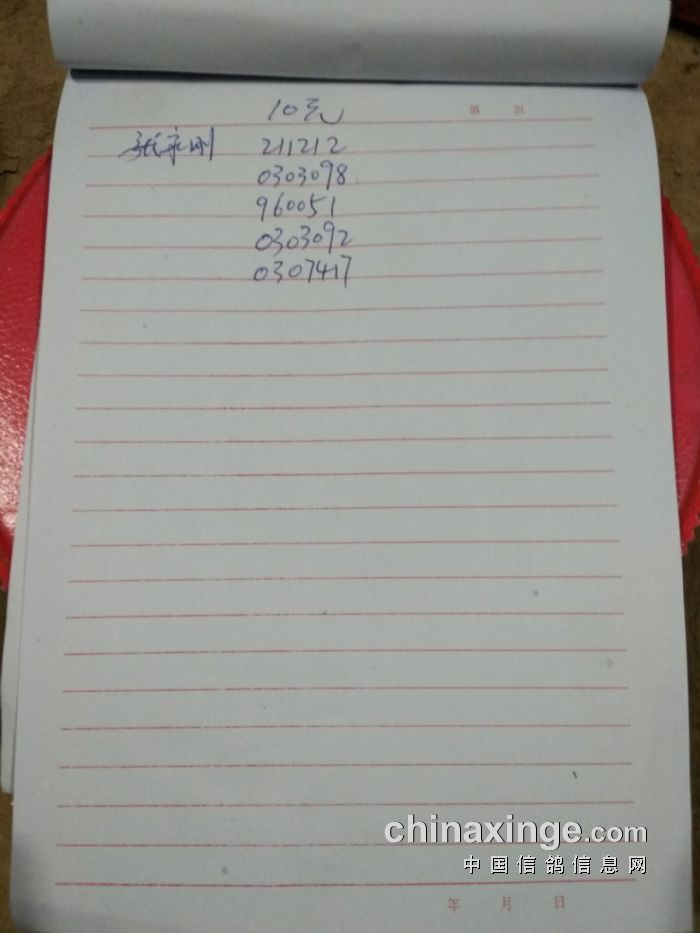 第 页
10元
张永刚 211212
0303098
960051
0303092
0307417
chinaxinge.com
中国信鸽信息网
年 月 日